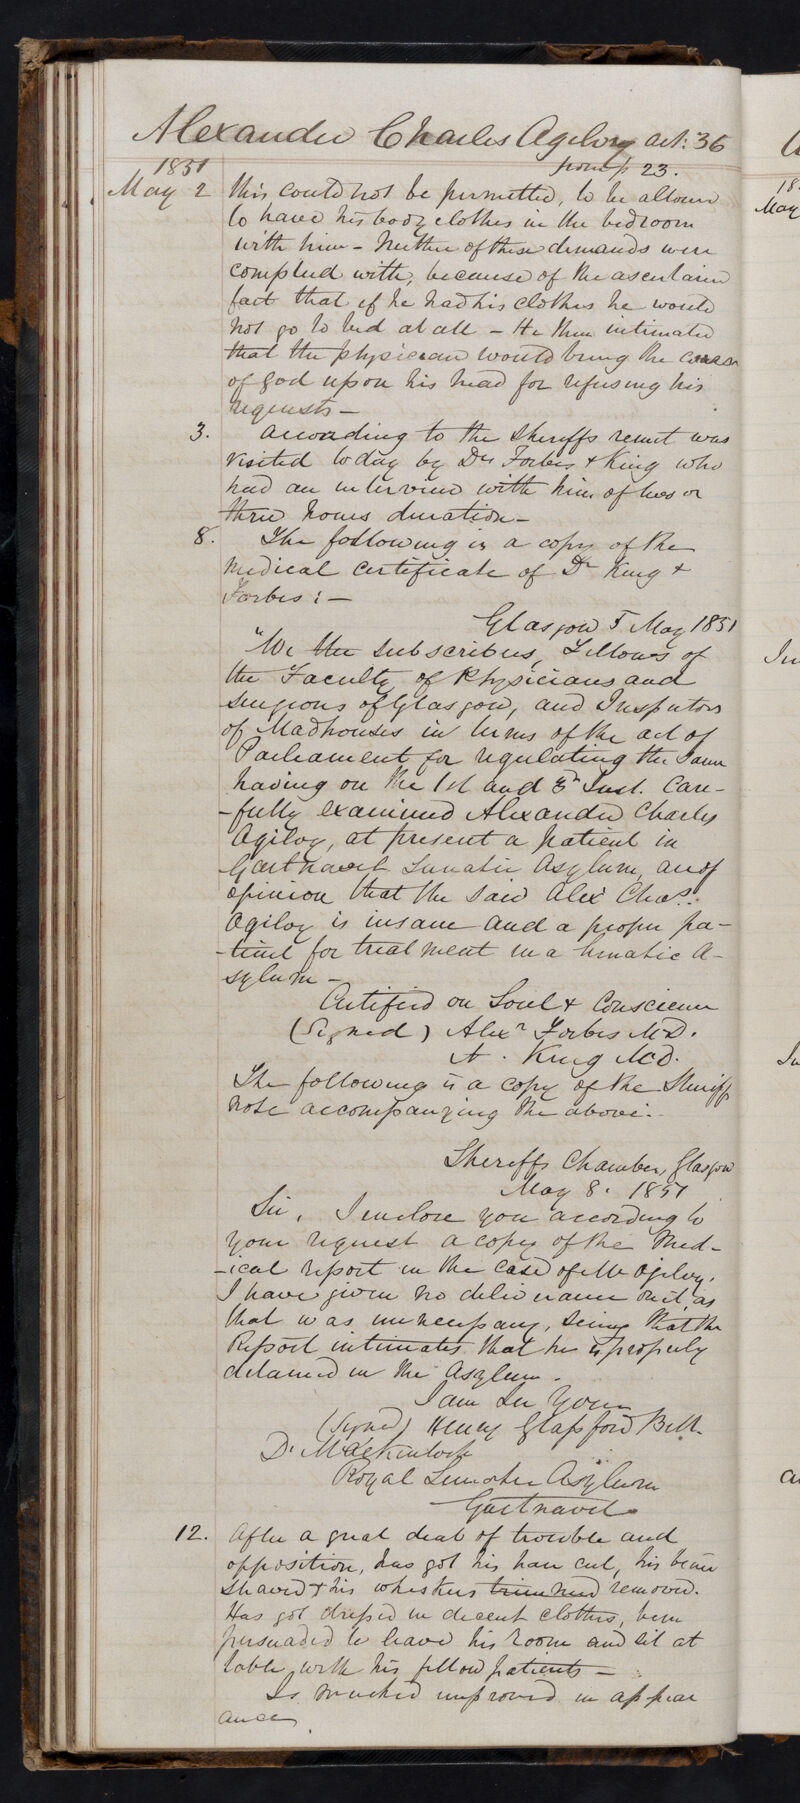 Alexander Charles Agilvy aet: 36
from p 23.
1851
May 2 this could not be permitted, to be allowed
to have his body clothes in the bedroom
with him – Neither of these demands were
complied with, because of the ascertained
fact that if he had his clothes he would
not go to bed at all – He then intimated
that the physician would bring the curse
of God upon his head for refusing his
requests –
3. According to the Sheriffs remit was
visited today by Drs Forbes & King who
had an interview with him of two or
three hours duration –
8. The following is a copy of the
medical certificate of Dr King &
Forbes: –
Glasgow 5 May 1851
"We the subscribers, Fellows of
the Faculty of Physicians and
surgeons of Glasgow, and Inspectors
of Madhouses in terms of the act of
Parliament for regulating the same
having on the 1st and 3d Inst. care-
-fully examined Alexander Charles
Agilvy, at present a patient in
Gartnavel Lunatic Asylum, are of
opinion that the said Alexr Chas.
Ogilvy is insane and a proper pa-
-tient for treatment in a lunatic A-
sylum –
Certified on Soul & Conscience
(Signed) Alexr Forbes M.D.
A. King M.D.
The following is a copy of the Sheriffs
note accompanying the above:
Sheriffs Chamber, Glasgow
May 8. 1851
Sir, I enclose you according to
your request a copy of the Med-
-ical report in the case of Mr Ogilvy.
I have given no deliverance on it, as
that was unnecessary, seeing that the
Report intimates that he is properly
detained in the Asylum.
I am Sir Yours
(Signed) Henry Glassford Bell
Dr Mackintosh
Royal Lunatic Asylum
Gartnavel
12. After a great deal of trouble and
opposition, has got his hair cut, his beard
shaved & his whiskers trimmed removed.
Has got dressed in decent clothes, been
persuaded to leave his room and sit at
table with his fellow patients –
Is much improved in appear
ance
18
May
In
In